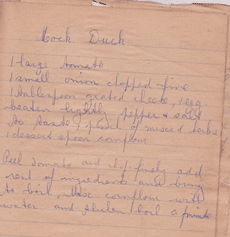 Mock Duck
1 large tomato
1 small onion chopped fine
1 tablespoon grated cheese, 1 egg
beaten lightly pepper & salt
to taste, pinch of mixed herbs
1 dessert spoon cornflour
Peel tomato and chop finely add
rest of ingredients and bring
to boil, cornflour with
water and boil a minute